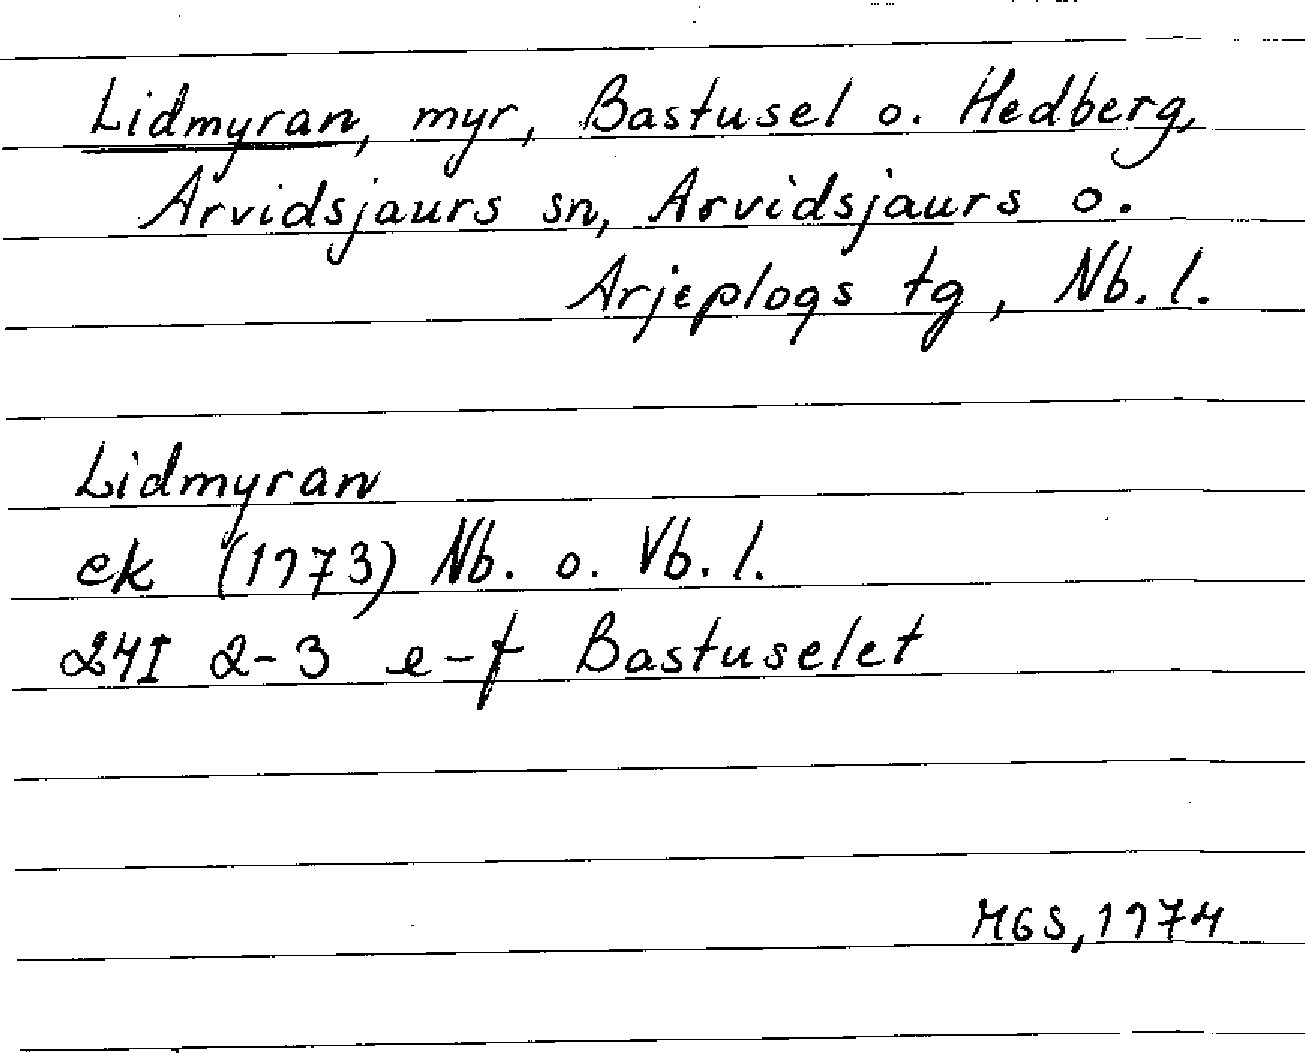 Lidmyran, myr, Bastusel o. Hedberg,
Arvidsjaurs sn, Arvidsjaurs o.
Arjeplogs tg, Nb. l.
Lidmyran
ek (1973) Nb. o. Vb. l.
24I 2-3 e-f Bastuselet
MGS, 1974